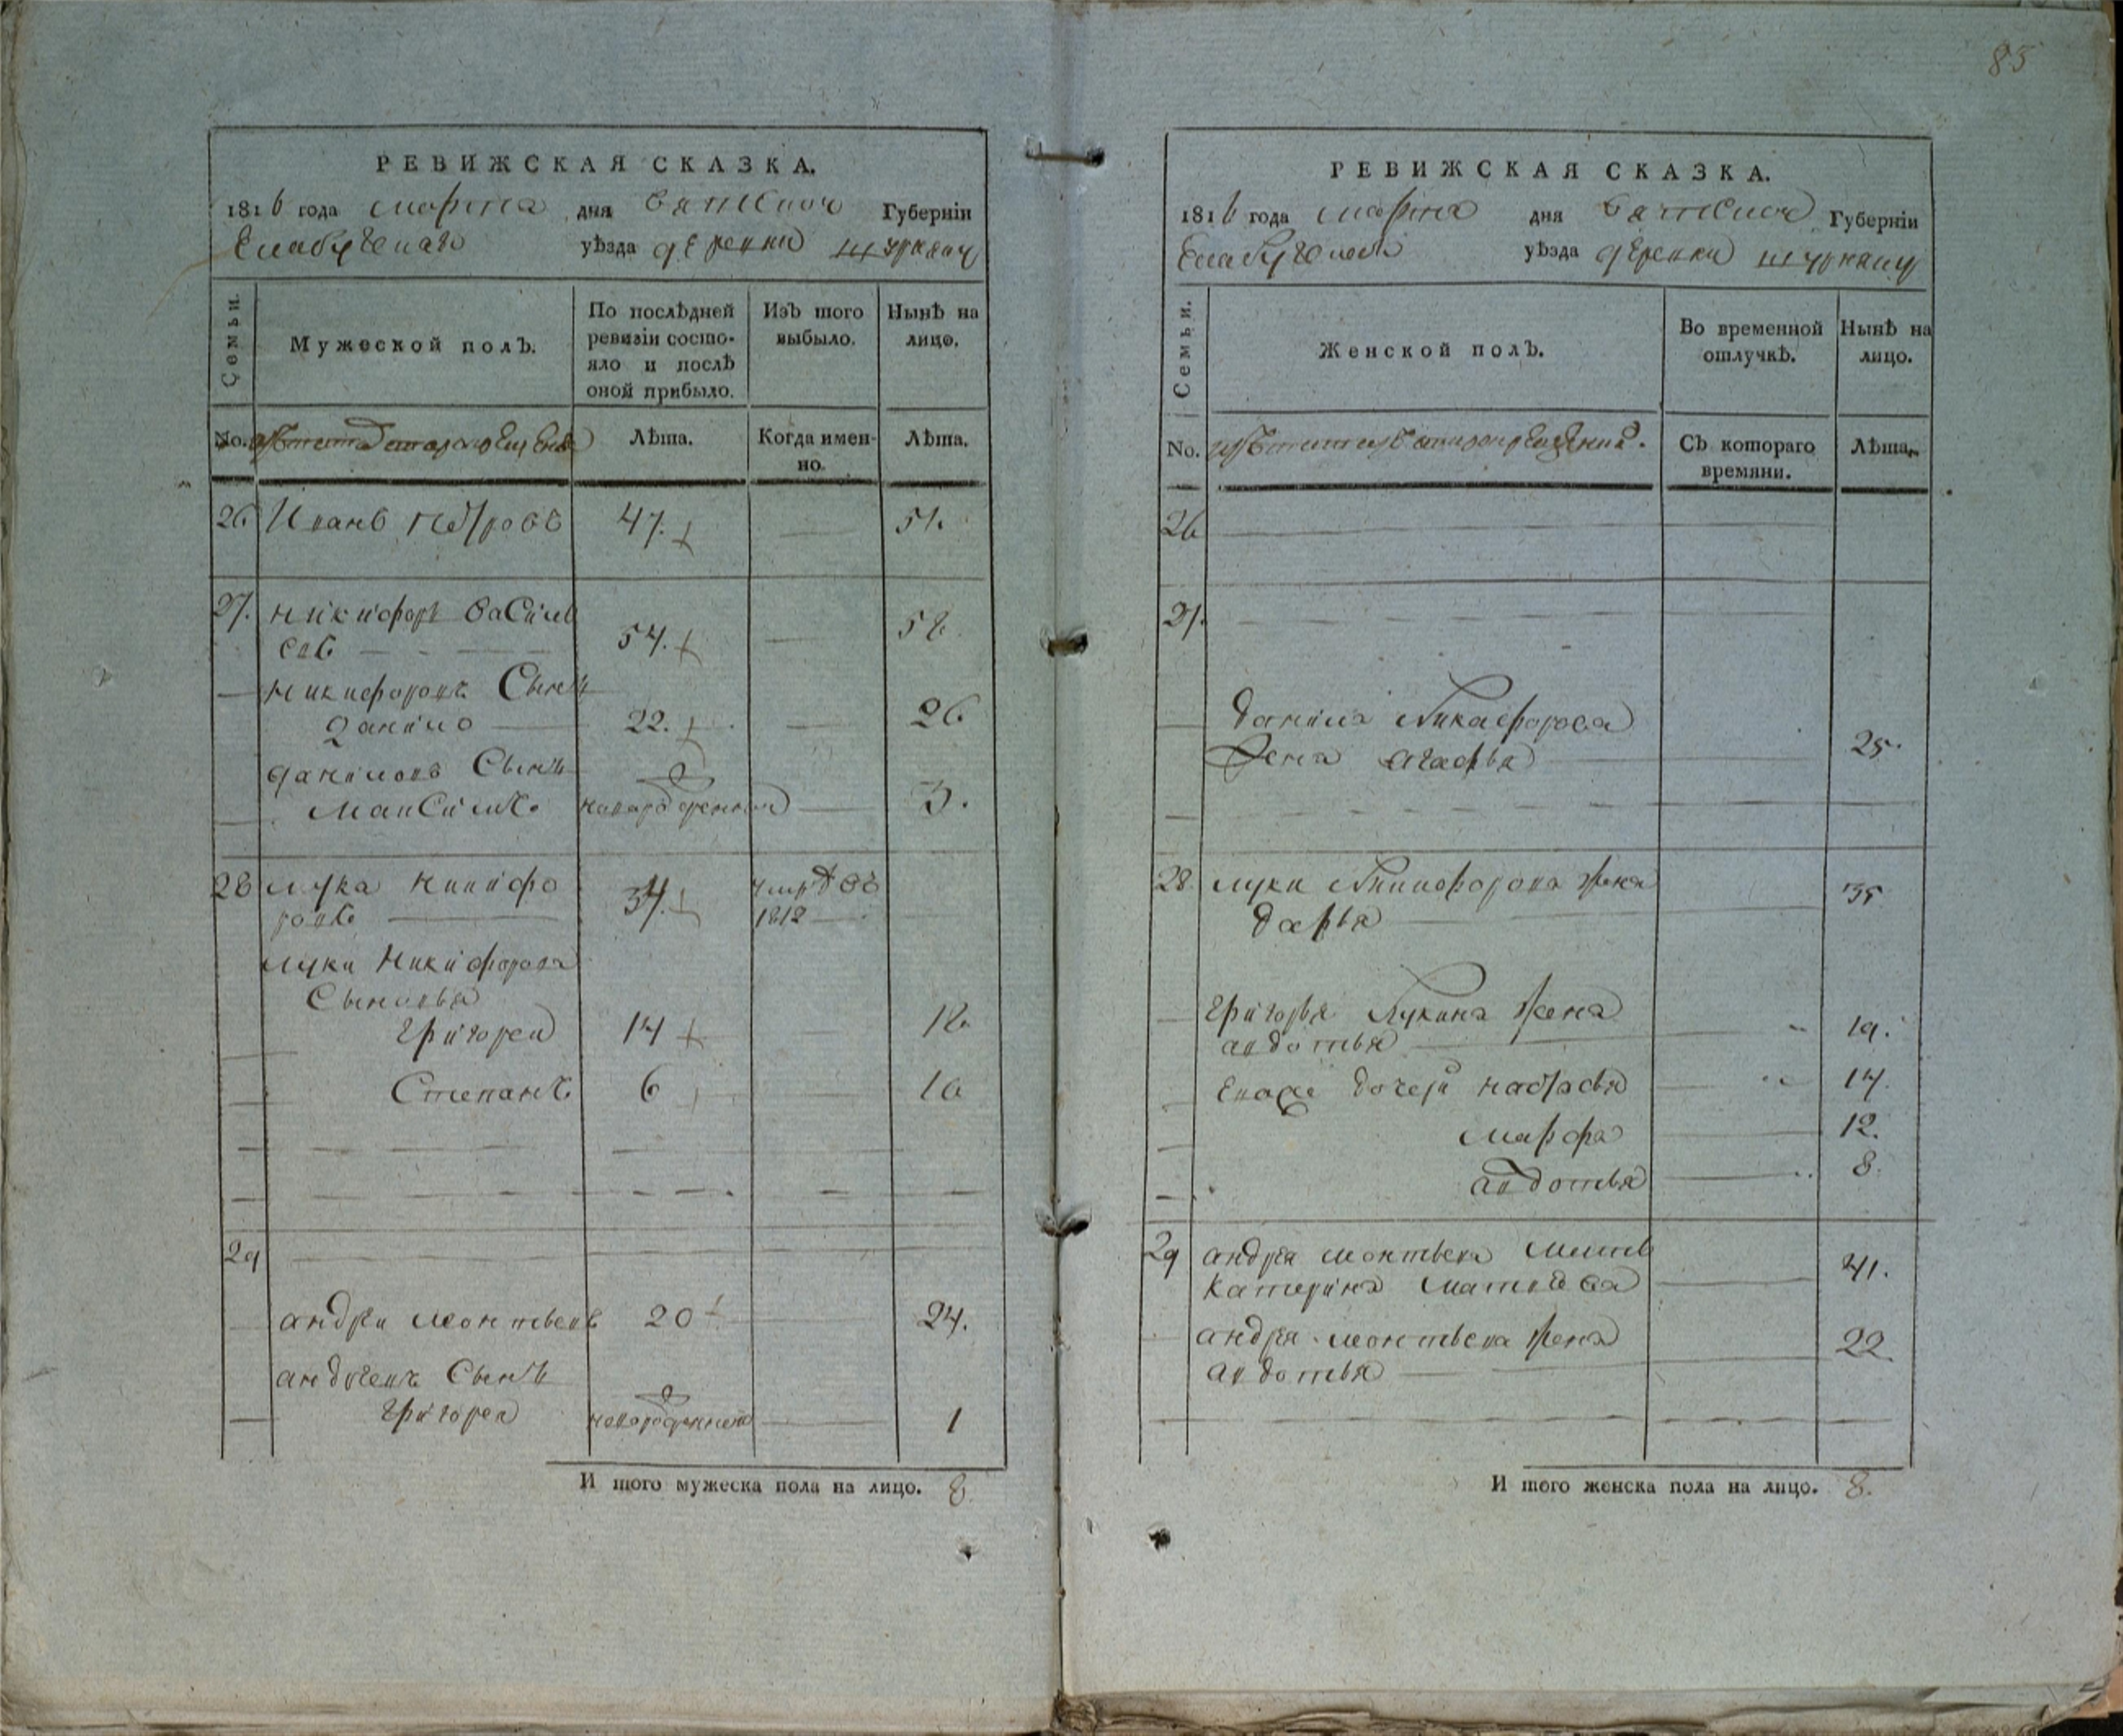 85
РЕВИЖСКАЯ СКАЗКА.
1816 года марта дня вятской Губерніи
Елабугскаго уѣзда деревни штурняшу
Семьи.
Мужеской полъ.
По послѣдней
ревизіи состо-
яло и послѣ
оной прибыло.
Изъ того
выбыло.
Нынѣ на
лицо.
No.
Лѣта.
Когда имен-
но.
Лѣта.
26 Иванъ петровъ 47. 51.
27. никифоръ василь
евъ 54. 58.
никифоровъ Сынъ
данило 22. 26
даниловъ Сынъ
Максимъ новорожденной 3.
28 лука никифо
ровъ 34. умръ въ
1812
луки никифорова
Сыновья
григореи 14 18.
Степанъ 6 10
29
андреи леонтьевъ 20 24.
андреевъ Сынъ
григореи новорожденной 1
И того мужеска пола на лицо. 8
РЕВИЖСКАЯ СКАЗКА.
1816 года марта дня вятской Губерніи
Елабугскаго уѣзда деревни штурняшу
Семьи.
Женской полъ.
Во временной
отлучкѣ.
Нынѣ на
лицо.
No.
Съ котораго
времяни.
Лѣта.
26
27.
данила Никифорова
жена агафья 25.
28. луки Никифорова жена
дарья 35
григорья Лукина жена
авдотья 19.
Евоже дочери настасья 14.
марфа 12.
авдотья 8.
29 андрея леонтьева мать
катерина матвѣева 41.
андрея леонтьева жена
авдотья 22
И того женска пола на лицо. 8.